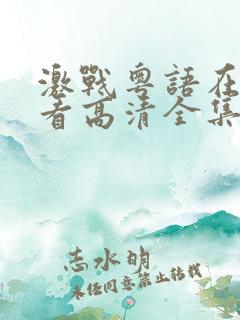 激戰粵語在
看高清全集
志水明
未经同意禁止转载